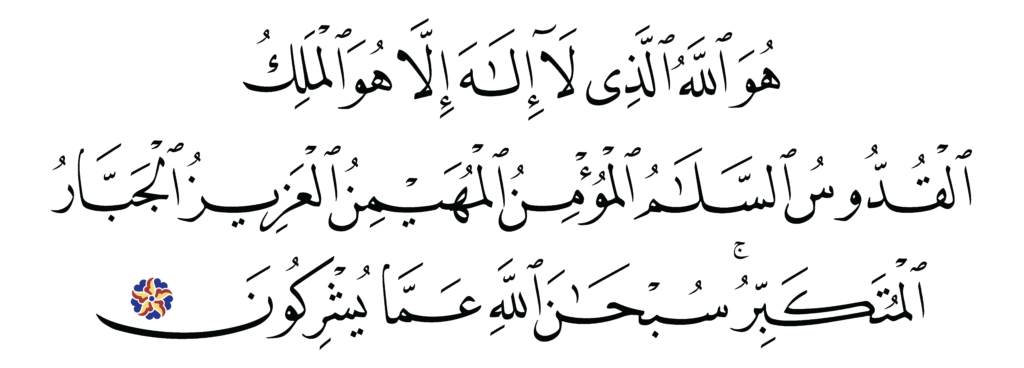 هُوَ ٱللَّهُ ٱلَّذِى لَآ إِلَـٰهَ إِلَّا هُوَ ٱلْمَلِكُ
ٱلْقُدُّوسُ ٱلسَّلَـٰمُ ٱلْمُؤْمِنُ ٱلْمُهَيْمِنُ ٱلْعَزِيزُ ٱلْجَبَّارُ
ٱلْمُتَكَبِّرُ ۚ سُبْحَـٰنَ ٱللَّهِ عَمَّا يُشْرِكُونَ